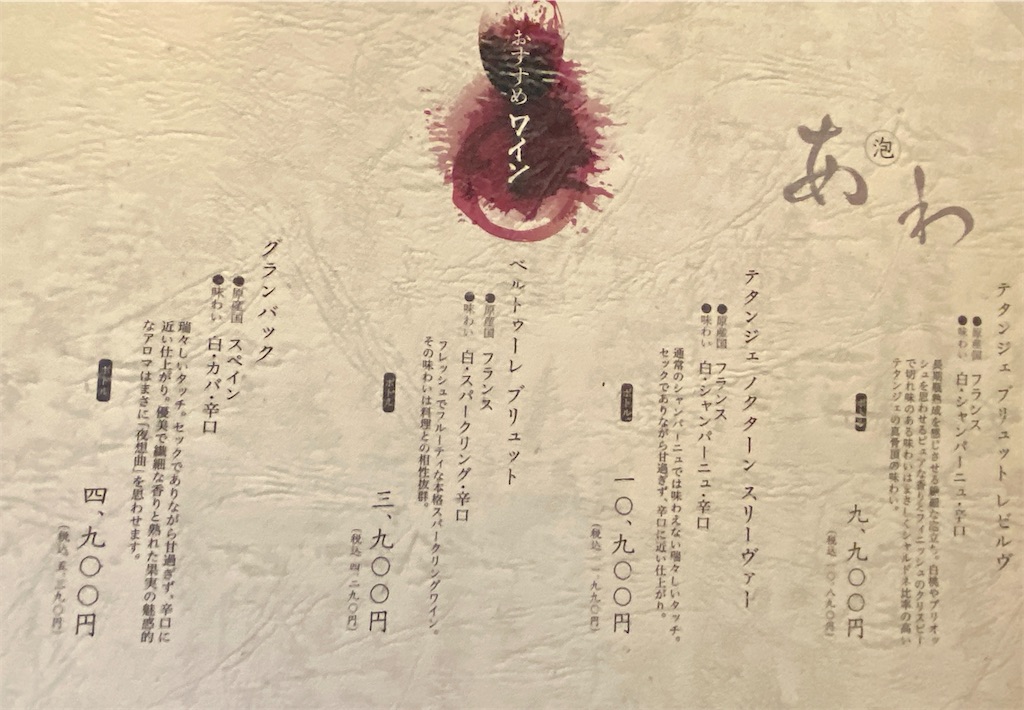 おすすめ
ワイン
あわ
泡
テタンジェ ブリュット レゼルヴ
●原産国 フランス
●味わい 白・シャンパーニュ・辛口
長期瓶熟成を感じさせる繊細な泡立ち。白桃やブリオッ
シュを思わせるピュアな香りとフィニッシュのクリスピー
で切れ味のある味わいはまさしくシャルドネ比率の高い
テタンジェの真骨頂の味わい。
ボトル
九、九〇〇円
(税込 一〇、八九〇円)
テタンジェ ノクターン スリーヴァー
●原産国 フランス
●味わい 白・シャンパーニュ・辛口
通常のシャンパーニュでは味わえない瑞々しいタッチ。
セックでありながら甘過ぎず、辛口に近い仕上がり。
ボトル
一〇、九〇〇円
(税込 一一、九九〇円)
ベルトゥーレ ブリュット
●原産国 フランス
●味わい 白・スパークリング・辛口
フレッシュでフルーティな本格スパークリングワイン。
その味わいは料理との相性抜群。
ボトル
三、九〇〇円
(税込 四、二九〇円)
グランバック
●原産国 スペイン
●味わい 白・カバ・辛口
瑞々しいタッチ。セックでありながら甘過ぎず、辛口に
近い仕上がり。優美で繊細な香りと熟れた果実の魅惑的
なアロマはまさに「夜想曲」を思わせます。
ボトル
四、九〇〇円
(税込 五、三九〇円)